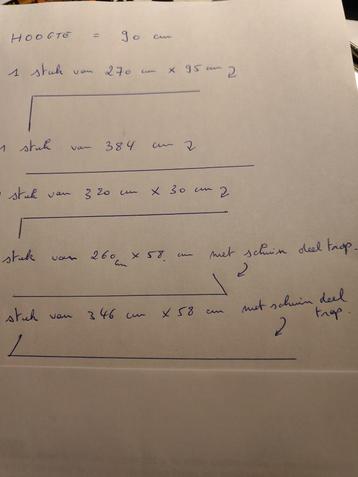 HOOGTE = 90 cm
1 stuk van 270 cm x 95 cm
1 stuk van 384 cm
stuk van 320 cm x 30 cm
stuk van 260 cm x 58 cm met schuin deel trap.
stuk van 346 cm x 58 cm met schuin deel
trap.